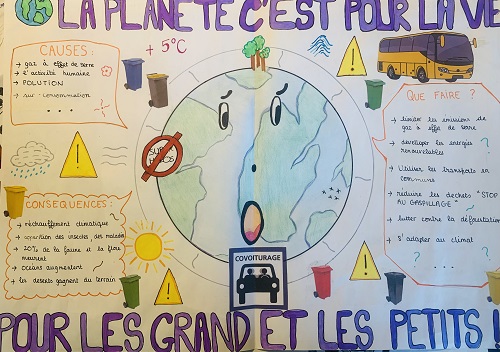 LA PLANETE C'EST POUR LA VIE
CAUSES :
→ gaz à effet de serre
→ l'activité humaine
→ POLUTION
→ sur : consommation
. . .
+ 5°C
CONSEQUENCES :
→ réchauffement climatique
→ apparition des insectes, des maladies
→ 20% de la faune et la flore
meurent
→ océans augmentent
→ les déserts gagnent du terrain
COVOITURAGE
QUE FAIRE ?
→ limiter les émissions de
gaz à effet de serre
→ développer les énergies
renouvelables
→ Utiliser les transports en
communs
→ réduire les dechets "STOP
AU GASPILLAGE"
→ lutter contre la déforestation
→ s'adapter au climat
? . . . ?
POUR LES GRAND ET LES PETITS !